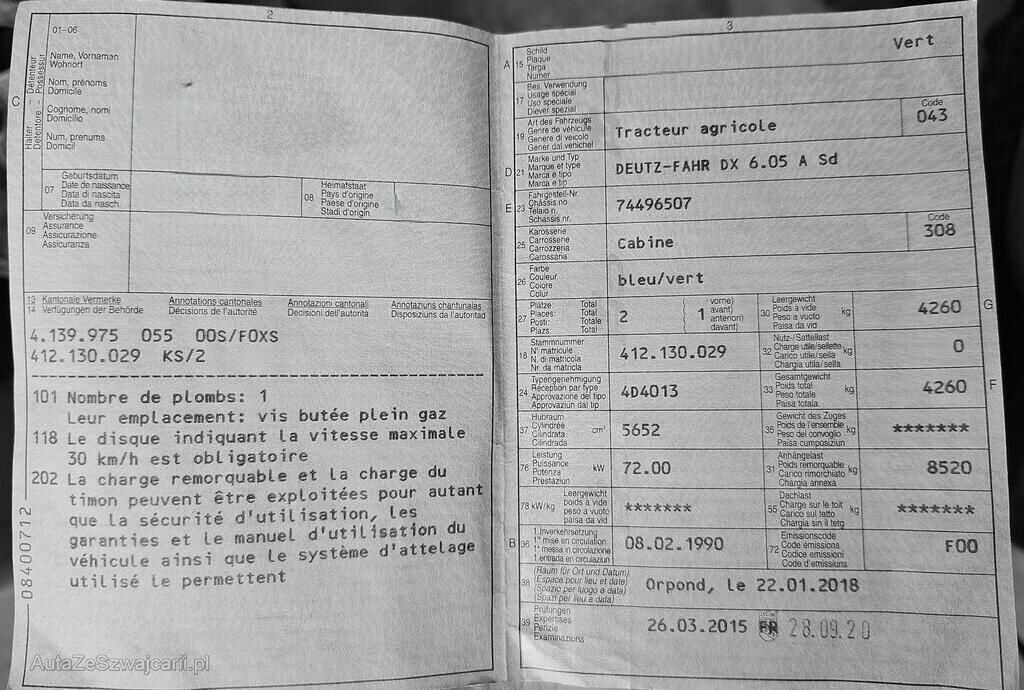 2
01-06
Halter Détenteur
Detentore Possessur
C
Name, Vornaman
Wohnort
Nom, prénoms
Domicile
Cognome, nomi
Domicilio
Num, prenums
Domicil
07
Geburtsdatum
Date de naissance
Data di nascita
Data da nasch.
08
Heimatstaat
Pays d'origine
Paese d'origine
Stadi d'origin
09
Versicherung
Assurance
Assicurazione
Assicuranza
13 Kantonale Vermerke Annotations cantonales Annotazioni cantonali Annotaziuns chantunalas
14 Verfügungen der Behörde Décisions de l'autorité Decisioni dell'autorità Disposiziuns da l'autoritad
4.139.975 055 00S/FOXS
412.130.029 KS/2
101 Nombre de plombs: 1
Leur emplacement: vis butée plein gaz
118 Le disque indiquant la vitesse maximale
30 km/h est obligatoire
202 La charge remorquable et la charge du
timon peuvent être exploitées pour autant
que la sécurité d'utilisation, les
garanties et le manuel d'utilisation du
véhicule ainsi que le système d'attelage
utilisé le permettent
08400712
AutaZeSzwajcarii.pl
3
A 15
Schild
Plaque
Targa
Numer
Vert
17
Bes. Verwendung
Usage spécial
Uso speciale
Diever spezial
19
Art des Fahrzeugs
Genre de véhicule
Genere di veicolo
Gener dal vehichel
Tracteur agricole
Code
043
D 21
Marke und Typ
Marque et type
Marca e tipo
Marca e tip
DEUTZ-FAHR DX 6.05 A Sd
E 23
Fahrgestell-Nr.
Châssis no
Telaio n.
Schassis nr.
74496507
25
Karosserie
Carrosserie
Carrozzeria
Carossaria
Cabine
Code
308
26
Farbe
Couleur
Colore
Colur
bleu/vert
27
Plätze: Total
Places: Total
Posti: Totale
Plazs: Total
2
1
vorne)
avant)
anteriori)
davant)
30
Leergewicht
Poids à vide
Peso a vuoto
Paisa da vid
kg
4260
G
18
Stammnummer
N° matricule
N. di matricola
Nr. da matricla
412.130.029
32
Nutz-/Sattellast
Charge utile/sellette
Carico utile/sella
Chargia utila/sella
kg
0
24
Typengenehmigung
Réception par type
Approvazione del tipo
Approvaziun dal tip
4D4013
33
Gesamtgewicht
Poids total
Peso totale
Paisa totala
kg
4260
F
37
Hubraum
Cylindrée
Cilindrata
Cilindrada
cm³
5652
35
Gewicht des Zuges
Poids de l'ensemble
Peso del convoglio
Paisa cumposiziun
kg
*******
76
Leistung
Puissance
Potenza
Prestaziun
kW
72.00
31
Anhängelast
Poids remorquable
Carico rimorchiato
Chargia annexa
kg
8520
78 kW/kg
Leergewicht
poids à vide
peso a vuoto
paisa da vid
*******
55
Dachlast
Charge sur le toit
Carico sul tetto
Chargia sin il tetg
kg
*******
B 36
1. Inverkehrsetzung
1re mise en circulation
1a messa in circolazione
1. entrada en circulaziun
08.02.1990
72
Emissionscode
Code émissions
Codice emissioni
Code d'emissiuns
F00
38
(Raum für Ort und Datum)
(Espace pour lieu et date)
(Spazio per luogo e data)
(Spazi per lieu e data)
Orpond, le 22.01.2018
39
Prüfungen
Expertises
Perizie
Examinaziuns
26.03.2015 FR 28.09.20